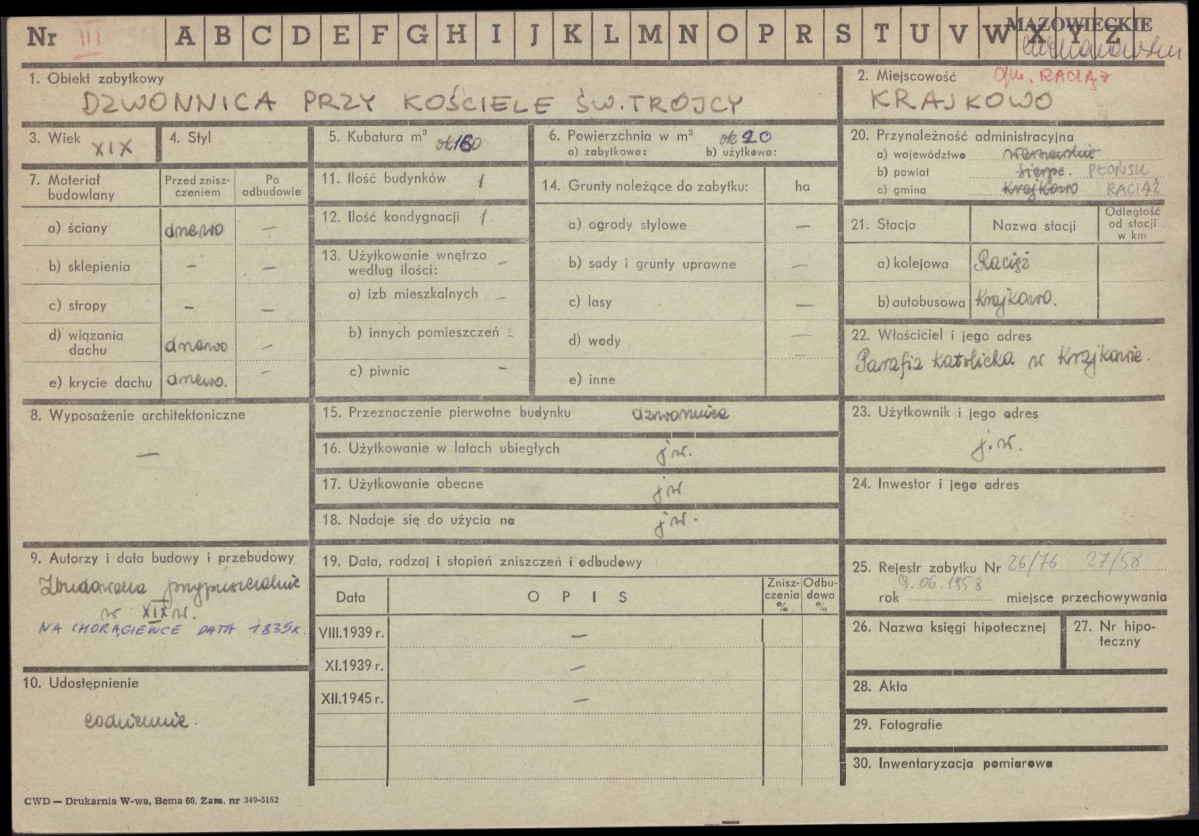 Nr III A B C D E F G H I J K L M N O P R S T U V W X Y Z MAZOWIECKIE
1. Obiekt zabytkowy
DZWONNICA PRZY KOŚCIELE ŚW. TRÓJCY
2. Miejscowość gm. RACIĄŻ
KRAJKOWO
3. Wiek XIX
4. Styl
5. Kubatura m³ ok 160
6. Powierzchnia w m² ok 20
a) zabytkowa: b) użytkowa:
20. Przynależność administracyjna
a) województwo warszawskie
b) powiat Sierpc. PŁOŃSK
c) gmina Krajkowo RACIĄŻ
7. Materiał budowlany
Przed zniszczeniem
Po odbudowie
a) ściany drewno –
b) sklepienia – –
c) stropy – –
d) wiązania dachu drewno –
e) krycie dachu drewno. –
11. Ilość budynków 1
12. Ilość kondygnacji 1
13. Użytkowanie wnętrza według ilości: –
a) izb mieszkalnych –
b) innych pomieszczeń –
c) piwnic –
14. Grunty należące do zabytku: ha
a) ogrody stylowe –
b) sady i grunty uprawne –
c) lasy –
d) wody –
e) inne
21. Stacja Nazwa stacji Odległość od stacji w km
a) kolejowa Raciąż
b) autobusowa Krajkowo.
22. Właściciel i jego adres
Parafia katolicka w Krajkowie.
8. Wyposażenie architektoniczne
–
15. Przeznaczenie pierwotne budynku dzwonnica
16. Użytkowanie w latach ubiegłych j.w.
17. Użytkowanie obecne j.w
18. Nadaje się do użycia na j.w.
23. Użytkownik i jego adres
j.w.
24. Inwestor i jego adres
9. Autorzy i data budowy i przebudowy
Zbudowana przypuszczalnie
w XIX w.
NA CHORĄGIEWCE DATA 1835 r.
10. Udostępnienie
codziennie.
19. Data, rodzaj i stopień zniszczeń i odbudowy
Data OPIS Zniszczenia % Odbudowa %
VIII.1939 r. –
XI.1939 r. –
XII.1945 r. –
25. Rejestr zabytku Nr 26/76 27/58
9.06.1958
rok miejsce przechowywania
26. Nazwa księgi hipotecznej
27. Nr hipoteczny
28. Akta
29. Fotografie
30. Inwentaryzacja pomiarowa
CWD — Drukarnia W-wa, Bema 60. Zam. nr 349-5162